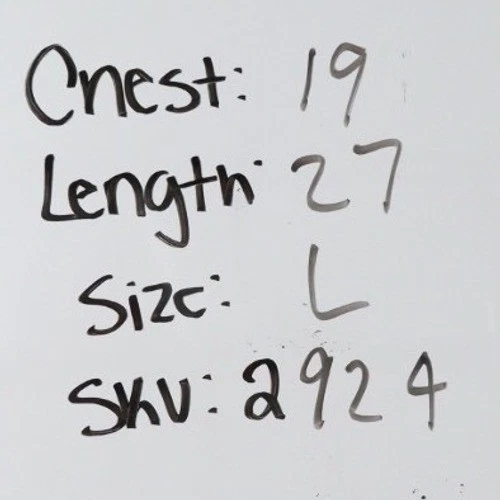 Chest: 19
Length: 27
Size: L
SKU: 2924